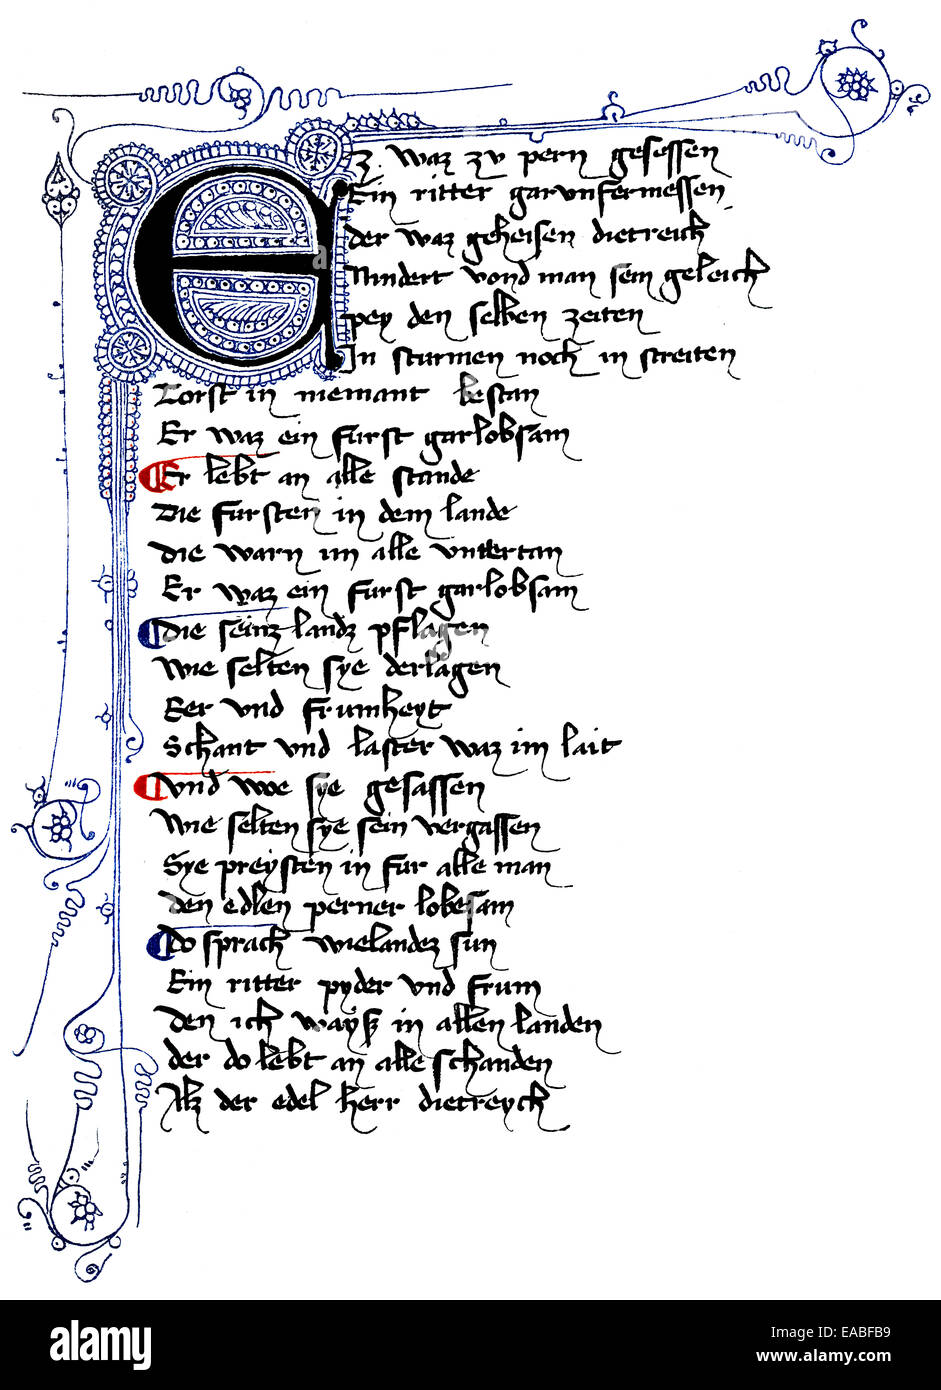 Ez waz zv pern gesessen
Ein ritter gar vnfermessen
der waz geheisen dietreich
Nindert vond man sein geleich
pey den selben zeiten
In sturmen noch in streiten
Torst in niemant bestan
Er waz ein furst garlobsam
Er lebt an alle stande
Die fursten in dem lande
die warn im alle vntertan
Er waz ein furst garlobsam
die seinz landz pflagen
wie selten sye derlagen
Eer vnd frumheyt
Schant vnd laster waz im lait
vnd woe sye gesassen
wie selten sye sein vergassen
Sye preysten in fur alle man
den edlen perner lobesam
do sprach wielandez sun
Ein ritter pyder vnd frum
den ich wayſz in allen landen
der do lebt an alle schanden
Alz der edel herr dietreych
a
alamy
Image ID: EABFB9
www.alamy.com